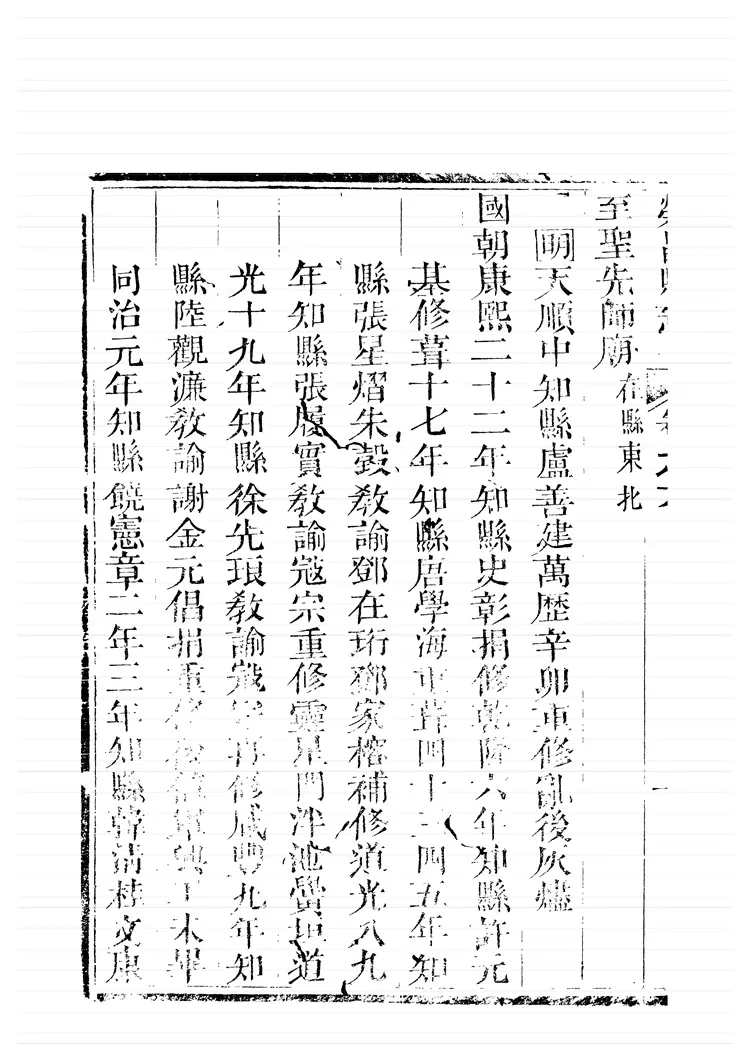 榮昌縣志
至聖先師廟在縣東北
明天順中知縣盧善建萬歷辛卯重修亂後灰燼
國朝康熙二十二年知縣史彰捐修乾隆六年知縣許元
基修葺十七年知縣唐學海重葺四十三四五年知
縣張星熠朱毅教諭鄧在珩鄧家榕補修道光八九
年知縣張履實教諭寇宗重修霽星門泮池黌垣道
光十九年知縣徐先琅教諭寇宗再修咸豐九年知
縣陸觀濂教諭謝金元倡捐重修興工未畢
同治元年知縣饒憲章二年三年知縣韓清桂文康